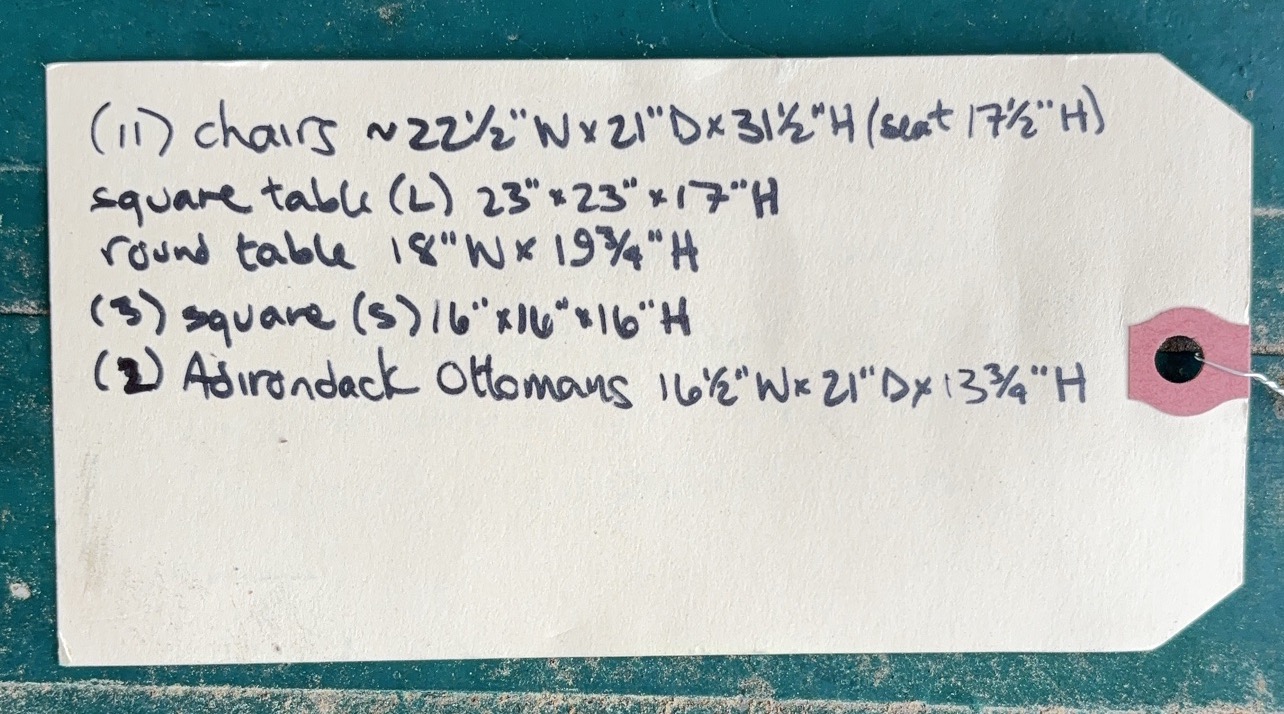 (11) chairs ~22½"W x 21"D x 31½"H (seat 17½"H)
square table (L) 23" x 23" x 17"H
round table 18"W x 19¾"H
(3) square (S) 16" x 16" x 16"H
(2) Adirondack Ottomans 16½"W x 21"D x 13¾"H